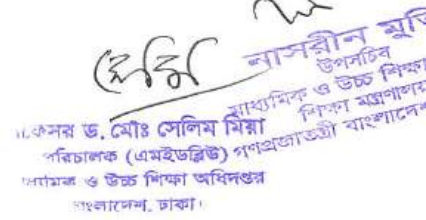 নাসরীন
উপসচিব
মাধ্যমিক ও উচ্চ শিক্ষা
শিক্ষা মন্ত্রণালয়
গণপ্রজাতন্ত্রী বাংলাদেশ
ড. মোঃ সেলিম মিয়া
পরিচালক (এমইডব্লিউ)
ও উচ্চ শিক্ষা অধিদপ্তর
বাংলাদেশ, ঢাকা।